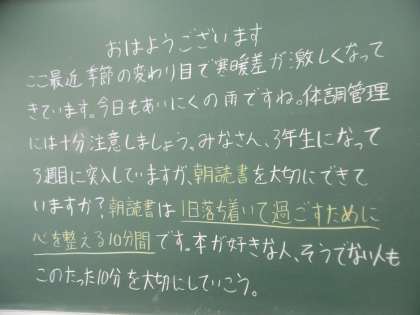 おはようございます
ここ最近季節の変わり目で寒暖差が激しくなって
きています。今日もあいにくの雨ですね。体調管理
には十分注意しましょう。みなさん、3年生になって
3週目に突入していますが、朝読書を大切にできて
いますか?朝読書は1日落ち着いて過ごすために
心を整える10分間です。本が好きな人、そうでない人も
このたった10分を大切にしていこう。